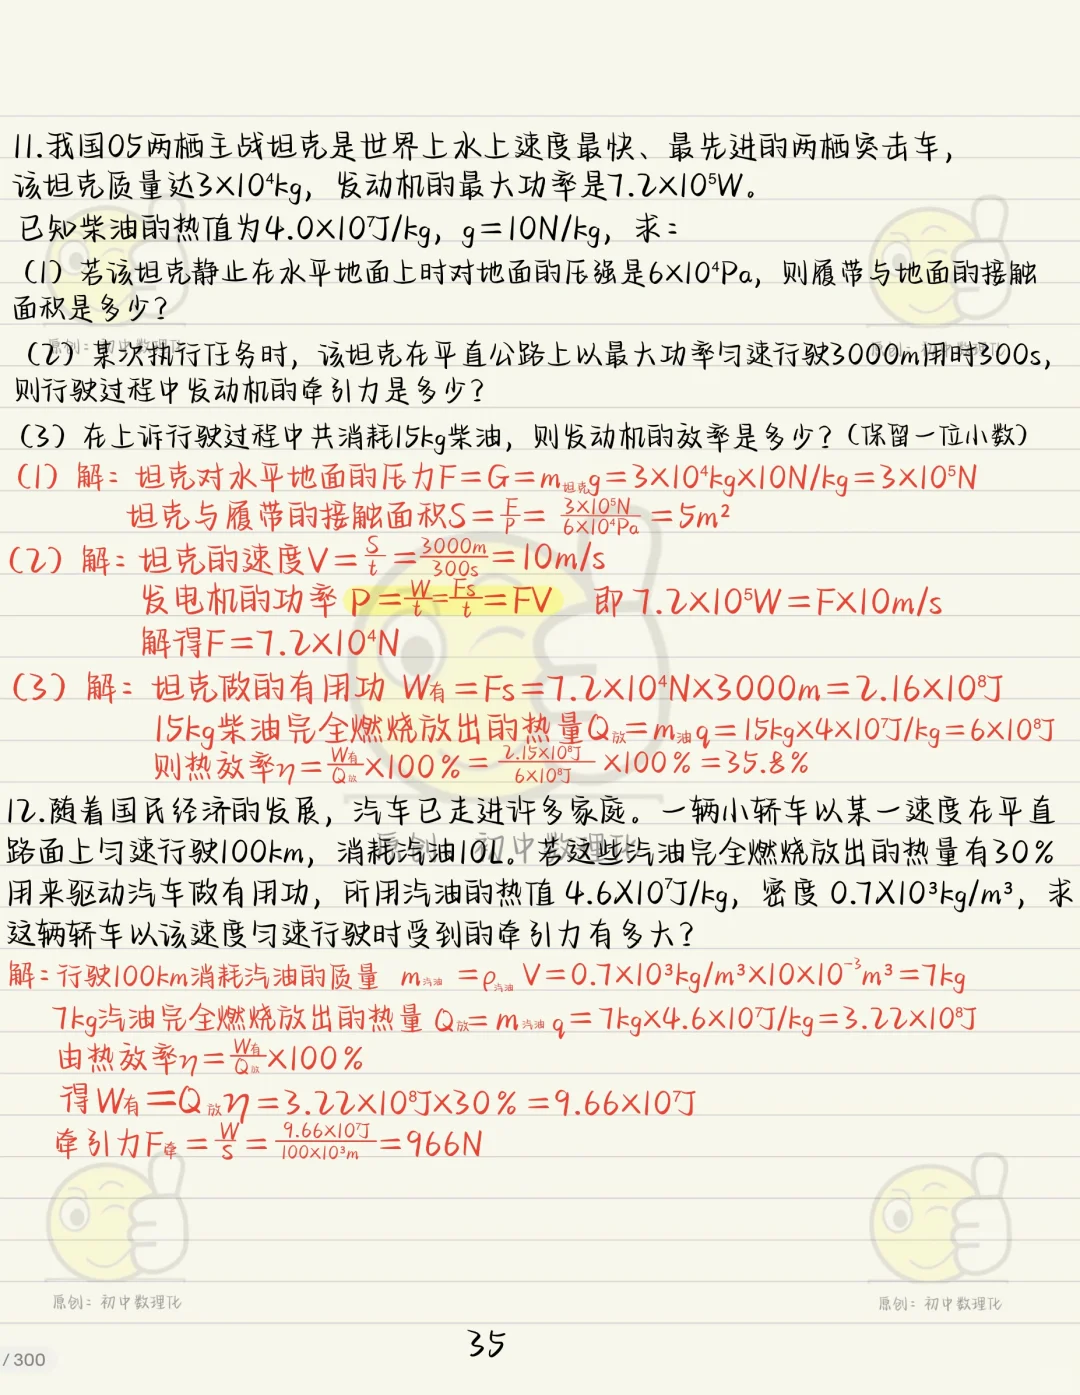 11.我国05两栖主战坦克是世界上水上速度最快、最先进的两栖突击车，
该坦克质量达3×10⁴kg，发动机的最大功率是7.2×10⁵W。
已知柴油的热值为4.0×10⁷J/kg，g=10N/kg，求：
（1）若该坦克静止在水平地面上时对地面的压强是6×10⁴Pa，则履带与地面的接触
面积是多少？
（2）某次执行任务时，该坦克在平直公路上以最大功率匀速行驶3000m用时300s，
则行驶过程中发动机的牵引力是多少？
（3）在上诉行驶过程中共消耗15kg柴油，则发动机的效率是多少？（保留一位小数）
（1）解：坦克对水平地面的压力F=G=m坦克g=3×10⁴kg×10N/kg=3×10⁵N
坦克与履带的接触面积S=F/P=3×10⁵N/6×10⁴Pa=5m²
（2）解：坦克的速度V=S/t=3000m/300s=10m/s
发电机的功率P=W/t=Fs/t=FV 即7.2×10⁵W=F×10m/s
解得F=7.2×10⁴N
（3）解：坦克做的有用功W有=Fs=7.2×10⁴N×3000m=2.16×10⁸J
15kg柴油完全燃烧放出的热量Q放=m油q=15kg×4×10⁷J/kg=6×10⁸J
则热效率η=W有/Q放×100%=2.15×10⁸J/6×10⁸J×100%=35.8%
12.随着国民经济的发展，汽车已走进许多家庭。一辆小轿车以某一速度在平直
路面上匀速行驶100km，消耗汽油10L。若这些汽油完全燃烧放出的热量有30%
用来驱动汽车做有用功，所用汽油的热值4.6×10⁷J/kg，密度0.7×10³kg/m³，求
这辆轿车以该速度匀速行驶时受到的牵引力有多大？
解：行驶100km消耗汽油的质量 m汽油=ρ汽油V=0.7×10³kg/m³×10×10⁻³m³=7kg
7kg汽油完全燃烧放出的热量Q放=m汽油q=7kg×4.6×10⁷J/kg=3.22×10⁸J
由热效率η=W有/Q放×100%
得W有=Q放η=3.22×10⁸J×30%=9.66×10⁷J
牵引力F牵=W/S=9.66×10⁷J/100×10³m=966N
原创：初中数理化
原创：初中数理化
原创：初中数理化
原创：初中数理化
原创：初中数理化
35
/300